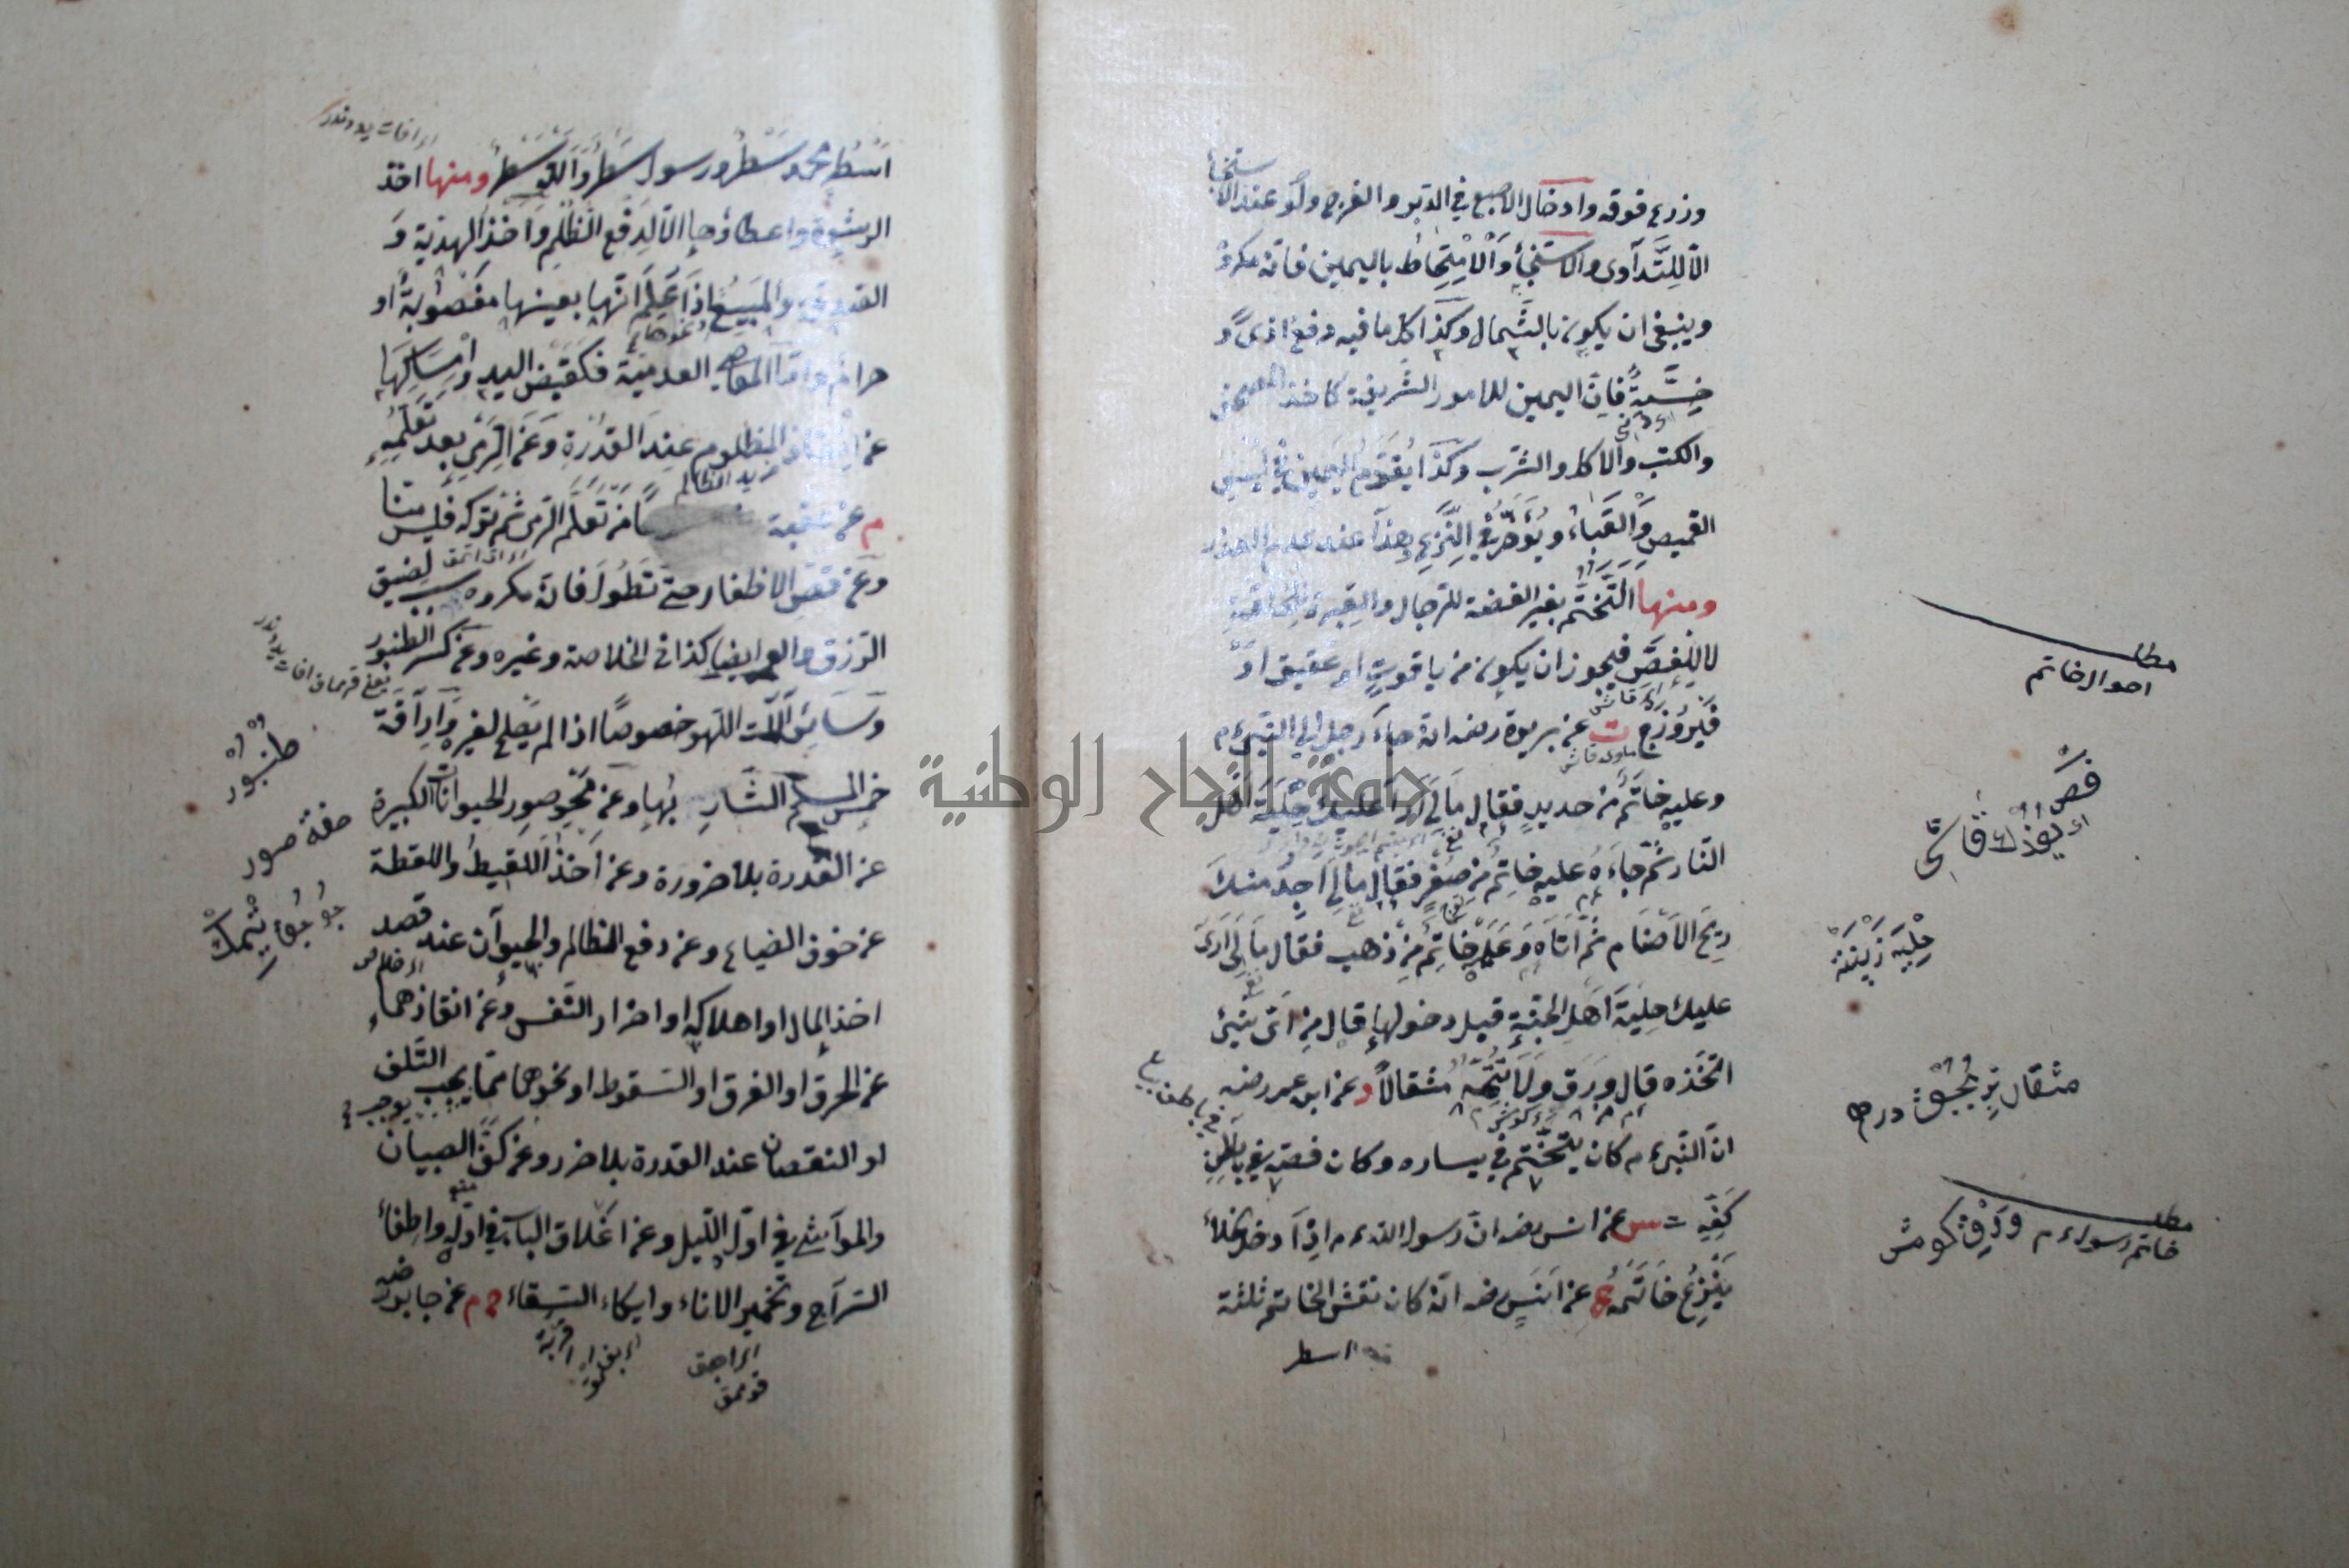 وزرع فوقه وادخال الاصبع في الدبر والفرج ولو عند الاستنجاء
الا للتداوى والاستنجاء والامتخاط باليمين فانه مكروه
وينبغى ان يكون بالشمال وكذا كل ما فيه دفع اذى و
خسة فان اليمين للامور الشريفة كاخذ المصحف
والكتب والاكل والشرب وكذا يقدم اليمين في لبس
القميص والقباء ويؤخر في النزع وهذا عند عدم العذر
ومنها التختم بغير الفضة للرجال والعبرة للحلقة
لا للفص فيجوز ان يكون من ياقوت او عقيق او
فيروزج ت عن بريدة رضه انه جاء رجل الى النبي ءم
وعليه خاتم من حديد فقال مالى ارى عليك حلية اهل
النار ثم جاءه عليه خاتم من صفر فقال مالى اجد منك
ريح الاصنام ثم اتاه وعليه خاتم من ذهب فقال مالى ارى
عليك حلية اهل الجنة قبل دخولها قال من اى شئ
اتخذه قال ورق ولا تتمه مثقالا د عن ابن عمر رضه
ان النبي ءم كان يتختم في يساره وكان فصه في باطن
كفه ت س عن انس رضه ان رسول الله ءم اذا دخل الخلاء
ينزع خاتمه خ عن انس رضه انه كان نقش الخاتم ثلثة
اسطر
مطلب
احوال خاتم
فص
حلية زينة
مثقال بر بچق درهم
مطلب
خاتم رسول ءم ورق كومش
اسطر محمد سطر ورسول سطر والله سطر ومنها اخذ
الرشوة واعطاؤها الا لدفع الظلم واخذ الهدية و
الصدقة والمبيع اذا علم انها بعينها مغصوبة او
حرام واما المعاصى العدمية فكقبض اليد وامساكها
عن المظلوم عند القدرة وعن الرمى بعد تعلمه
م عن عقبة من تعلم الرمى ثم تركه فليس منا
وعن قص الاظفار حتى تطول فانه مكروه سبب لضيق
الرزق والعمر ايضا كذا فى الخلاصة وغيره وعن كسر الطنبور
وسائر آلات اللهو خصوصا اذا لم يصلح لغيره واراقة
خمر المسلم الشارب بها وعن محو صور الحيوانات الكبيرة
عن القدرة بلا ضرورة وعن اخذ اللقيط واللقطة
عن خوف الضياع وعن دفع الظالم والحيوان عند قصد
اخذ المال او اهلاكه او اضرار النفس وعن انقاذهما
عن الحرق او الغرق او السقوط او نحوها مما يجب التلف
او النقصان عند القدرة بلا ضرر وعن كف الصبيان
والمواشى في اول الليل وعن اغلاق الباب في اوله واطفاء
السراج وتخمير الاناء وايكاء السقاء خ م عن جابر رضه
طنبور
صفة صور